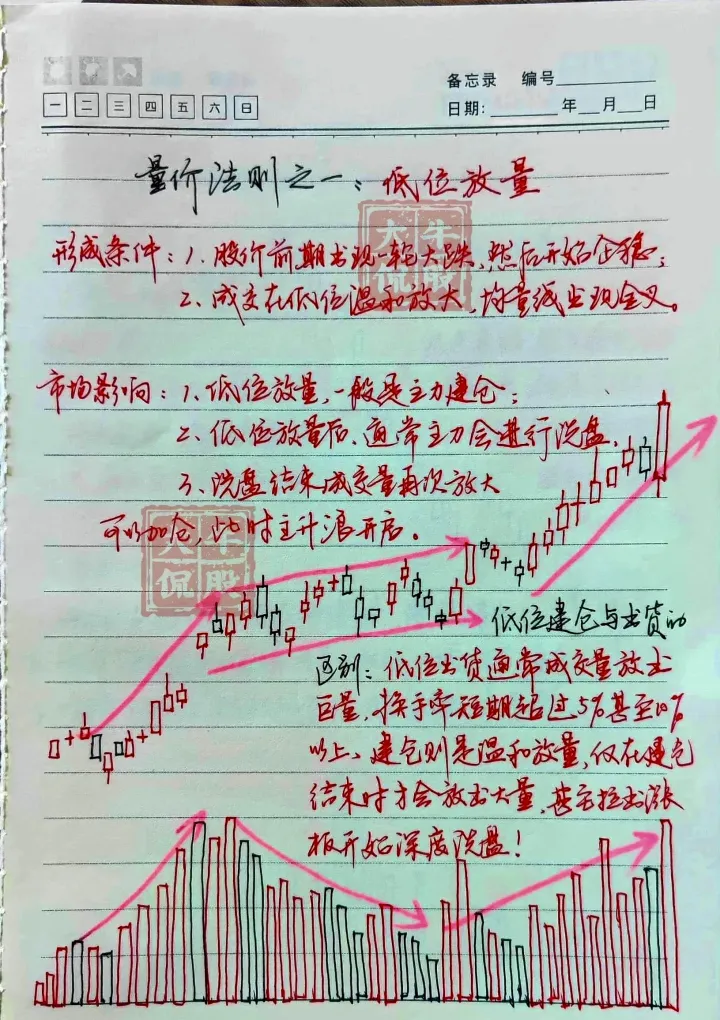 备忘录 编号
一 二 三 四 五 六 日
日期: 年 月 日
量价法则之一：低位放量
大牛
侃股
形成条件：1、股价前期出现一轮大跌，然后开始企稳；
2、成交在低位温和放大，均量线出现金叉。
市场影响：1、低位放量，一般是主力建仓；
2、低位放量后，通常主力会进行洗盘，
3、洗盘结束成交量再次放大
可以加仓，此时主升浪开启。
大牛
侃股
低位建仓与出货的
区别：低位出货通常成交量放出
巨量，换手率短期超过5%甚至10%
以上，建仓则是温和放量，仅在建仓
结束时才会放出大量，甚至拉出涨
板开始深度洗盘！